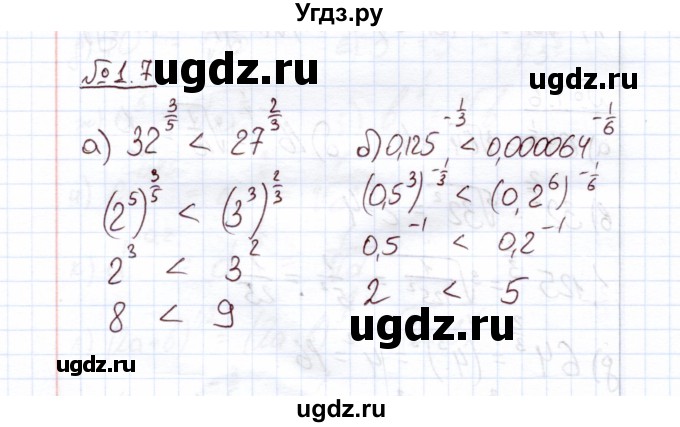 Угдз.ру
№ 1.7
ugdz.ru ugdz.ru
а) 32^{3/5} < 27^{2/3}
б) 0,125^{-1/3} < 0,000064^{-1/6}
(2^5)^{3/5} < (3^3)^{2/3}
(0,5^3)^{-1/3} < (0,2^6)^{-1/6}
2^3 < 3^2
0,5^{-1} < 0,2^{-1}
8 < 9
2 < 5
ugdz.ru ugdz.ru
ugdz.ru